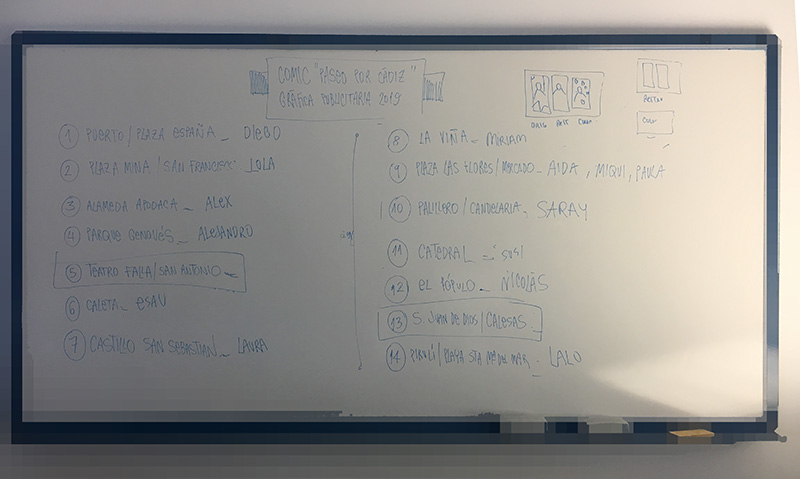 COMIC "PASEO POR CÁDIZ"
GRÁFICA PUBLICITARIA 2019
RETRO
COLOR
1 PUERTO/PLAZA ESPAÑA_ DIEGO
2 PLAZA MINA "SAN FRANCISCO" _LOLA
3 ALAMEDA APODACA_ ALEX
4 PARQUE GENOVÉS_ ALEJANDRO
5 TEATRO FALLA/SAN ANTONIO_
6 CALETA_ ESAU
7 CASTILLO SAN SEBASTIAN_ LAURA
8 LA VIÑA_ MIRIAM
9 PLAZA LAS FLORES/MERCADO_ AIDA, MIQUI, PAULA
10 PALILLERO/CANDELARIA_ SARAY
11 CATEDRAL _ SUSI
12 EL PÓPULO_ NICOLÁS
13 S. JUAN DE DIOS/CALESAS_
14 PIRULÍ/PLAYA STA Mª DEL MAR_ LALO